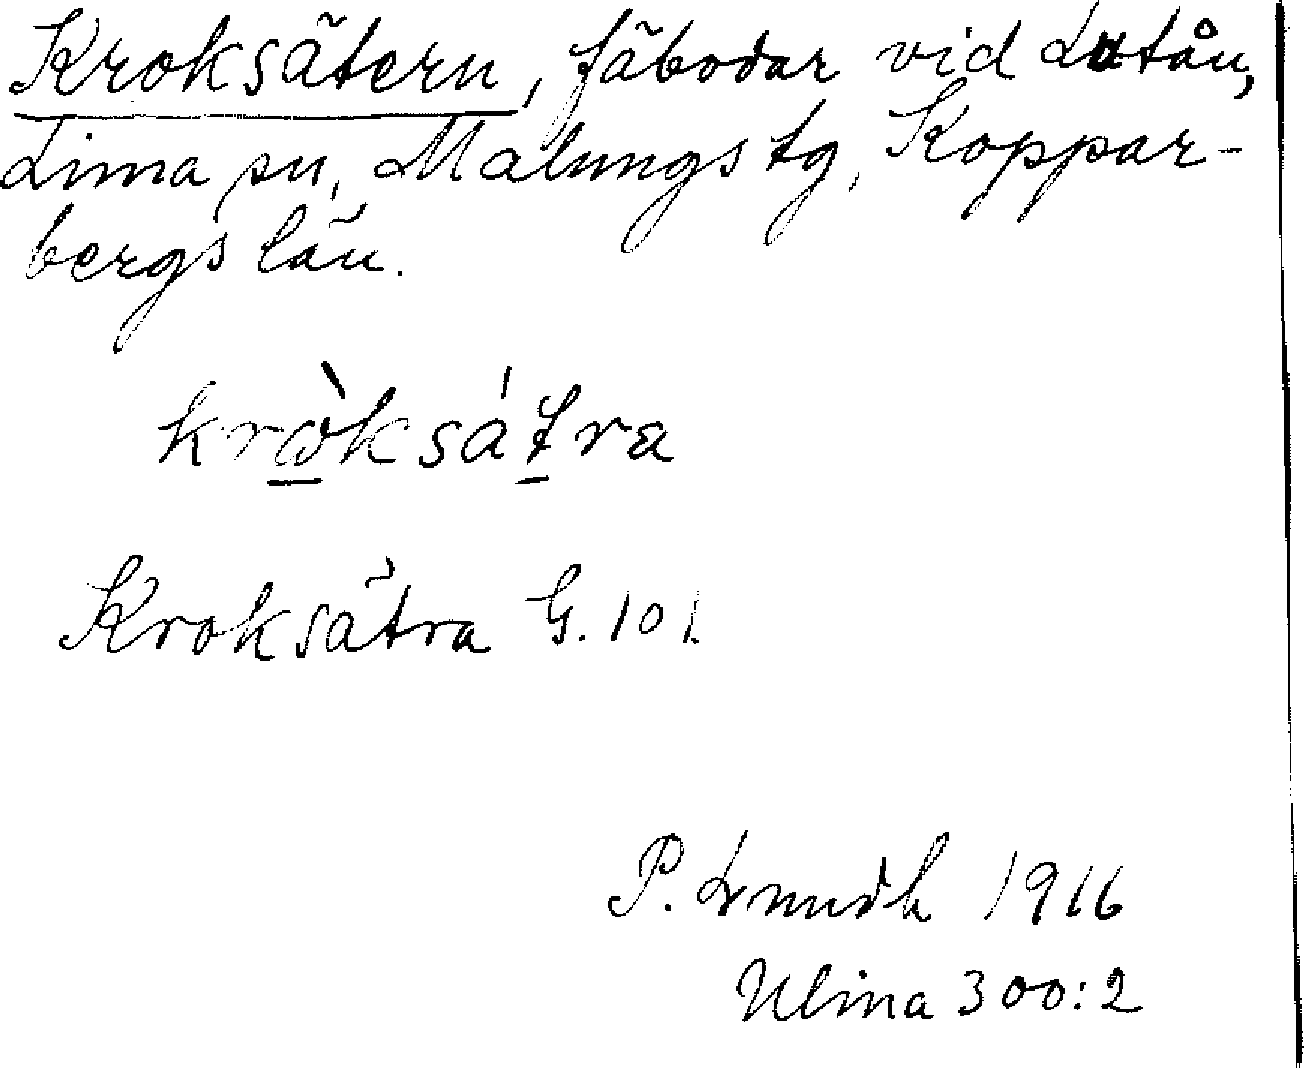 Kroksätern, fäbodar vid Lutån,
Lima sn, Malungs tg, Koppar-
bergs län.
krὼ̲ksát̲ra
Kroksätra G. 101.
P. 1916
Ulma 300:2